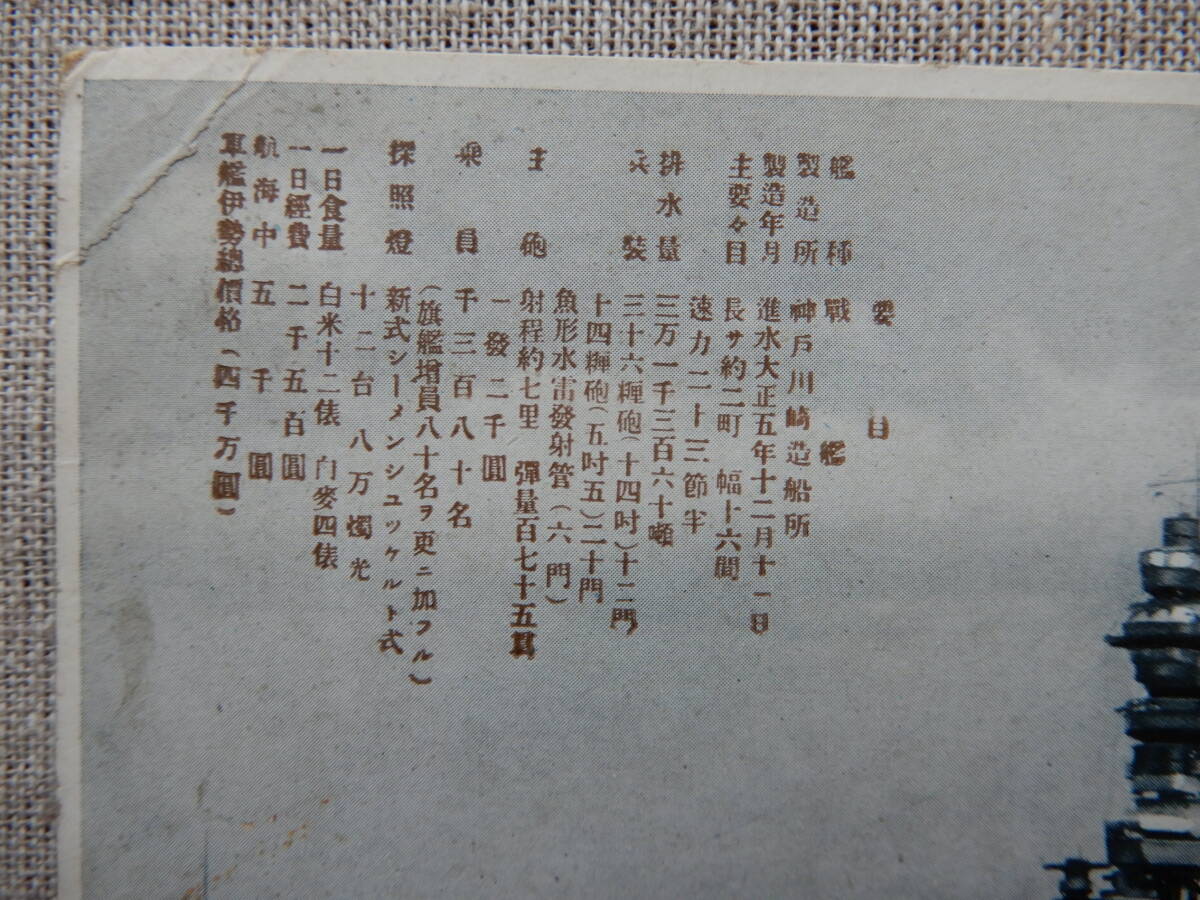 要目
艦種 戰艦
製造所 神戸川崎造船所
製造年月 進水大正五年十二月十一日
主要々目 長サ約二町 幅十六間
速力二十三節半
排水量 三万一千三百六十噸
兵裝 三十六糎砲(十四吋)十二門
十四糎砲(五吋五)二十門
魚形水雷發射管(六門)
主砲 射程約七里 彈量百七十五貫
一發二千圓
乗員 千三百八十名
(旗艦增員八十名ヲ更ニ加フル)
探照燈 新式シーメンシユツケルト式
十二台 八万燭光
一日食量 白米十二俵 白麥四俵
一日經費 二千五百圓
航海中 五千圓
軍艦伊勢總價格(四千万圓)